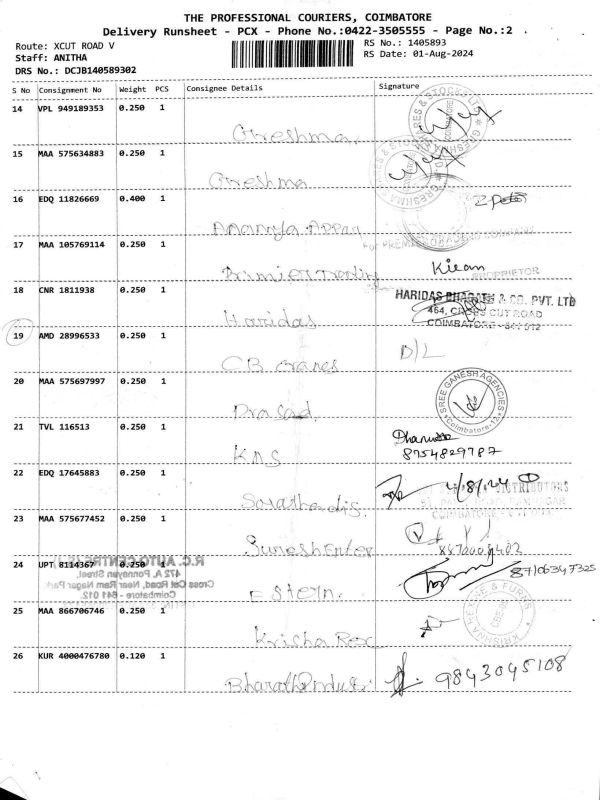 THE PROFESSIONAL COURIERS, COIMBATORE
Delivery Runsheet - PCX - Phone No.:0422-3505555 - Page No.:2
Route: XCUT ROAD V
RS No.: 1405893
Staff: ANITHA
RS Date: 01-Aug-2024
DRS No.: DCJB140589302
S No Consignment No Weight PCS Consignee Details Signature
14 VPL 949189353 0.250 1
Greshma
15 MAA 575634883 0.250 1
Greshma
16 EDQ 11826669 0.400 1
Ananya Appan
17 MAA 105769114 0.250 1
For PREMIER TRADING COMPANY
Kiran
PROPRIETOR
18 CNR 1811938 0.250 1
Haridas
HARIDAS BHARATH & CO. PVT. LTD
464, CROSS CUT ROAD
COIMBATORE - 641 012
19 AMD 28996533 0.250 1
CB cranes
D/L
20 MAA 575697997 0.250 1
Prasad
SREE GANESH AGENCIES
Coimbatore-12
21 TVL 116513 0.250 1
KNS
8754829787
22 EDQ 17645883 0.250 1
2/8/24
DISTRIBUTORS
23 MAA 575677452 0.250 1
Suresh Enter
24 UPT 8114367 0.250 1
R.C. AUTO CENTRE
472.A, Ponnayan Street,
Cross Cut Road, Near Ram Nagar Park
Coimbatore - 641 012.
Estern.
25 MAA 866706746 0.250 1
Krisha Rex
26 KUR 4000476780 0.120 1
Bharath Indus
9843045108